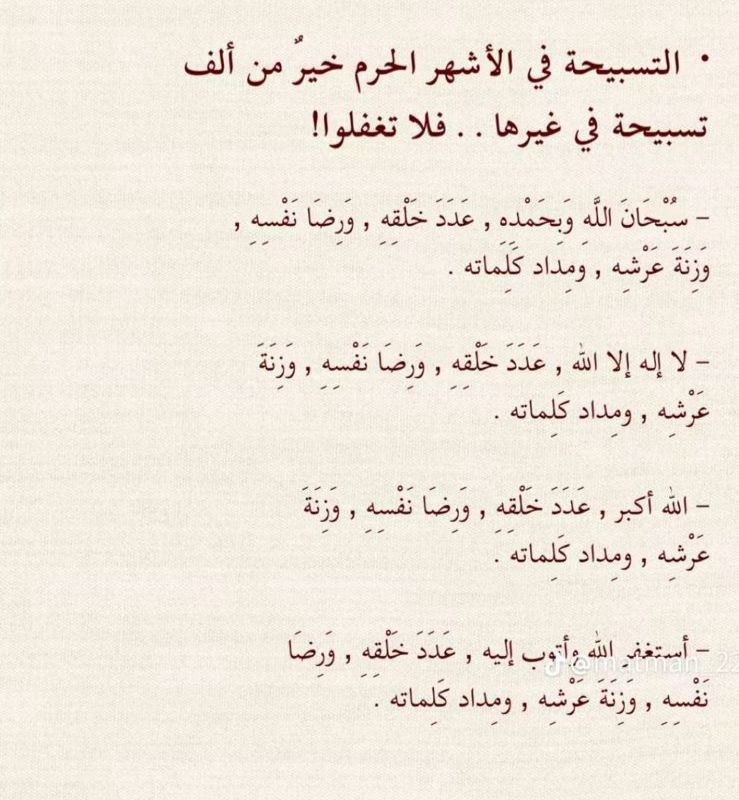 • التسبيحة في الأشهر الحرم خيرٌ من ألف
تسبيحة في غيرها . . فلا تغفلوا!
– سُبْحَانَ اللَّهِ وَبِحَمْدِهِ , عَدَدَ خَلْقِهِ , وَرِضَا نَفْسِهِ ,
وَزِنَةَ عَرْشِه , ومِداد كَلِماته .
– لا إله إلا الله , عَدَدَ خَلْقِهِ , وَرِضَا نَفْسِهِ , وَزِنَةَ
عَرْشِه , ومِداد كَلِماته .
– الله أكبر , عَدَدَ خَلْقِهِ , وَرِضَا نَفْسِهِ , وَزِنَةَ
عَرْشِه , ومِداد كَلِماته .
– أستغفر الله وأتوب إليه , عَدَدَ خَلْقِهِ , وَرِضَا
نَفْسِهِ , وَزِنَةَ عَرْشِه , ومِداد كَلِماته .